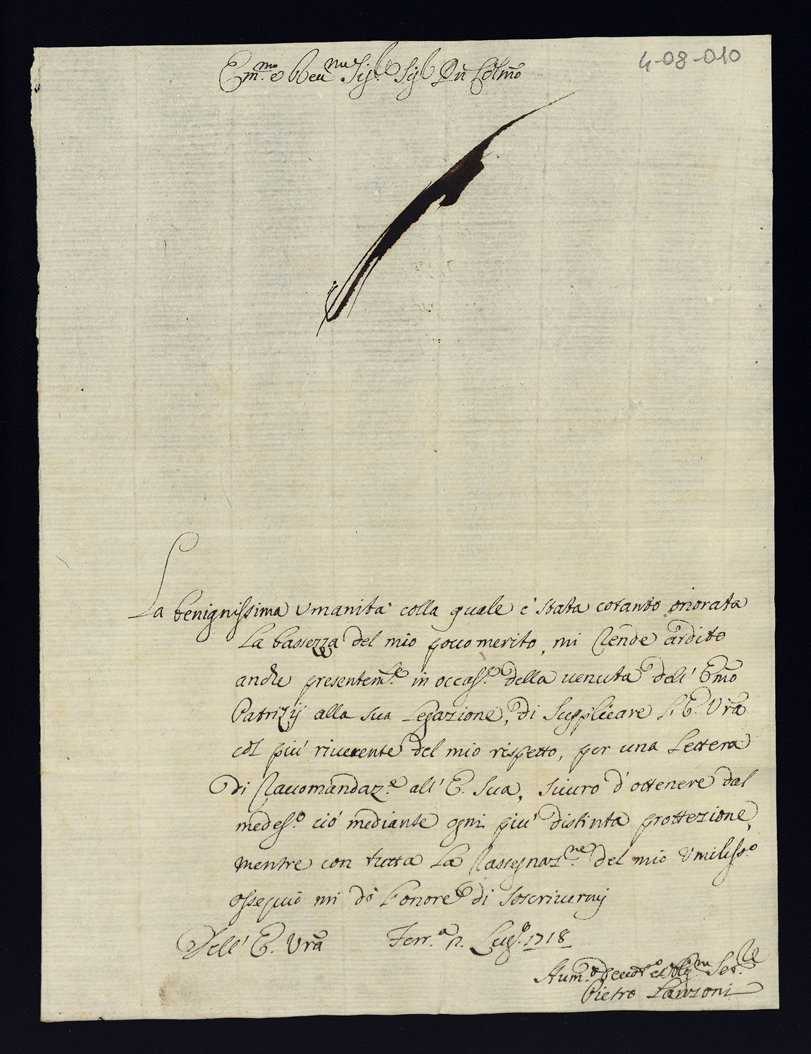 4-08-010
Em.mo e Reu.mo Sig.r Sig.r Pñ Colmo
La benignissima Umanità colla quale è stata cotanto onorata
la bassezza del mio poco merito, mi rende ardito
anche presentem.te in occas.e della venuta dell' Emo
Patrizij alla sua Legazione, di supplicare l' E. Vrã
col più riverente del mio rispetto, per una Lettera
di Raccomandaz.e all' E. Sua, sicuro d' ottenere dal
medes.o ciò mediante ogni più distinta protezione,
mentre con tutta la Rassegnaz.ne del mio Umiliss.o
ossequio mi dò l' onore di soscrivermi
Dell' E. Vrã Ferr.a Lug.o 1718
Hum.o Ser.re
Pietro Lanzoni